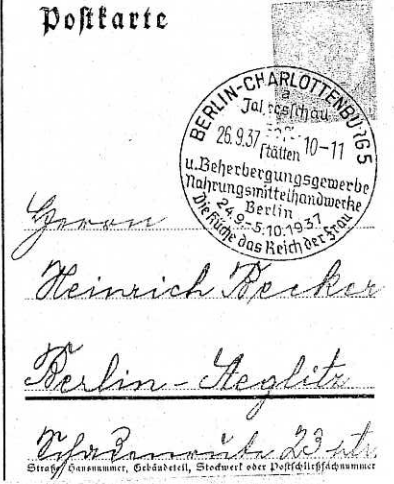 Postkarte
BERLIN-CHARLOTTENBURG 5
a
Jahresschau
26.9.37 10-11
stätten
u. Beherbergungsgewerbe
Nahrungsmittelhandwerke
Berlin
24.9.-5.10.1937
Die Küche das Reich der Frau
Herrn
Heinrich Becker
Berlin-Steglitz
23
Straße, Hausnummer, Gebäudeteil, Stockwerk oder Postschließfachnummer